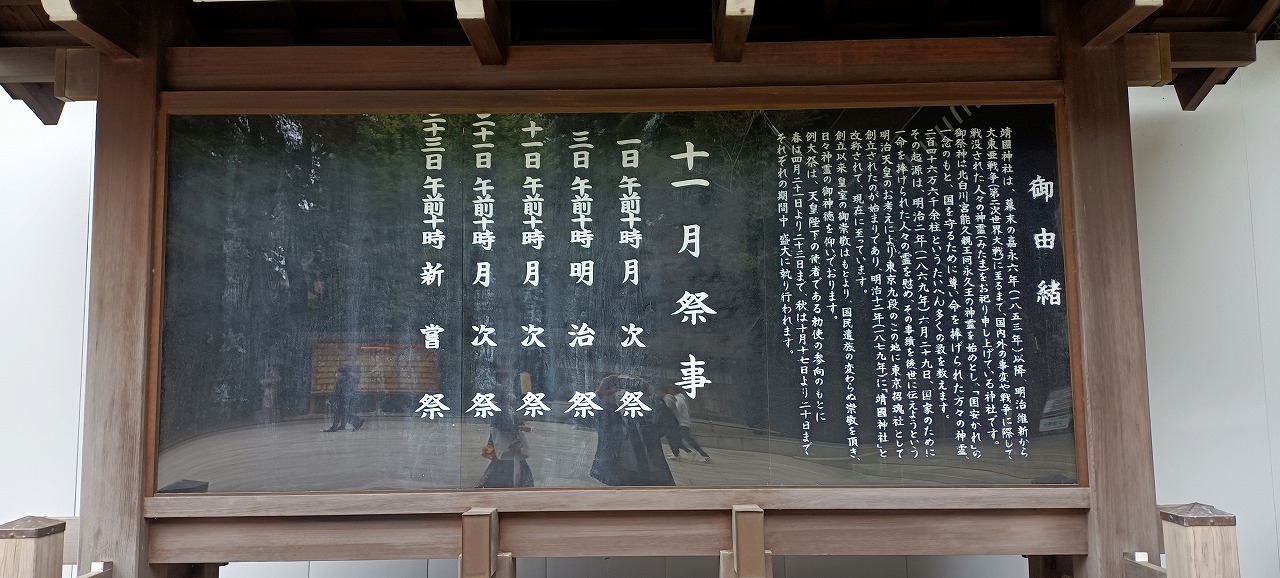 御由緒
靖國神社は、幕末の嘉永六年(一八五三年)以降、明治維新から
大東亜戦争(第二次世界大戦)に至るまで、国内外の事変や戦争に際して、
戦没された人々の神霊(みたま)をお祀り申し上げている神社です。
御祭神は北白川宮能久親王同永久王の神霊を始めとし、「国安かれ」の
一念のもと、国を守るために尊い命を捧げられた方々の神霊、
二百四十六万六千余柱というたいへん多くの数を数えます。
その起源は、明治二年(一八六九年)六月二十九日、国家のために
一命を捧げられた人々の霊を慰め、その事績を後世に伝えようという
明治天皇のお考えにより、東京九段のこの地に東京招魂社として
創立されたのが始まりであり、明治十二年(一八七九年)に「靖國神社」と
改称されて、現在に至っています。
創立以来、皇室の御崇敬はもとより、国民遺族の変わらぬ崇敬を頂き、
日々神霊の御神徳を仰いでおります。
例大祭は、天皇陛下の使者である勅使の参向のもとに
春は四月二十一日より二十三日まで、秋は十月十七日より二十日まで
それぞれの期間中、盛大に執り行われます。
十一月祭事
一日 午前十時 月次祭
三日 午前十時 明治祭
十一日 午前十時 月次祭
二十一日 午前十時 月次祭
二十三日 午前十時 新嘗祭